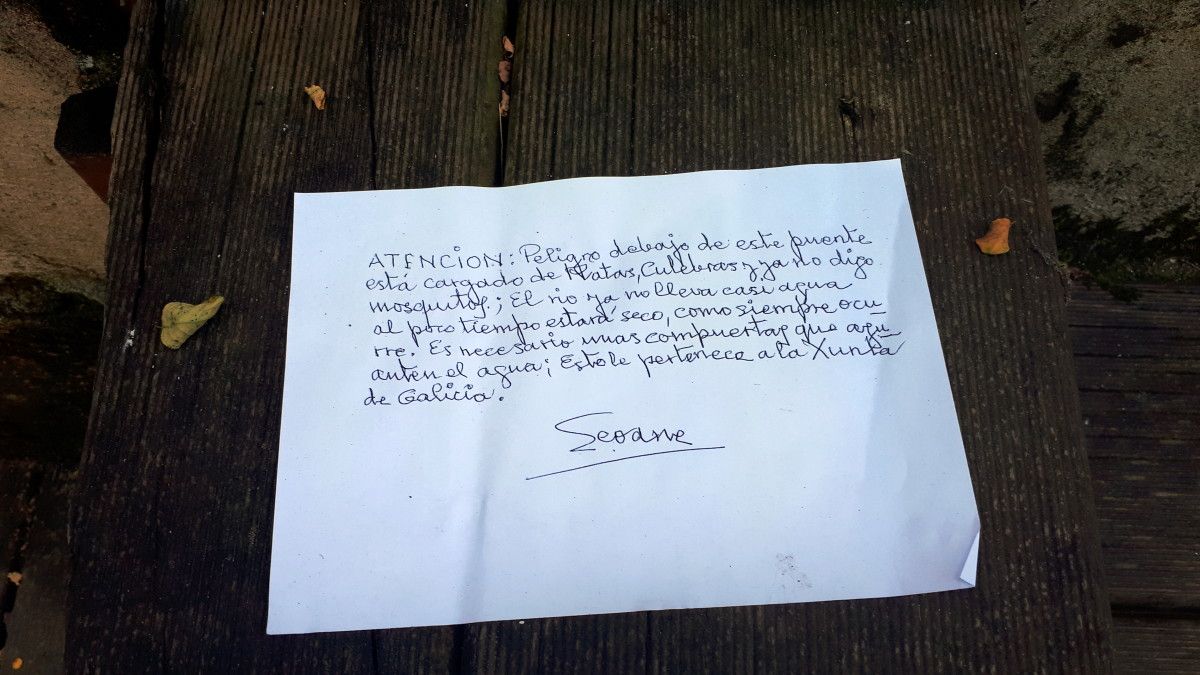 ATENCION: Peligro debajo de este puente
está cargado de Ratas, Culebras y ya no digo
mosquitos.; El rio ya no lleva casi agua
al poco tiempo estará seco, como siempre ocu_
rre. Es necesario unas compuertas que agu_
anten el agua; Esto le pertenece a la Xunta
de Galicia.
Seoane